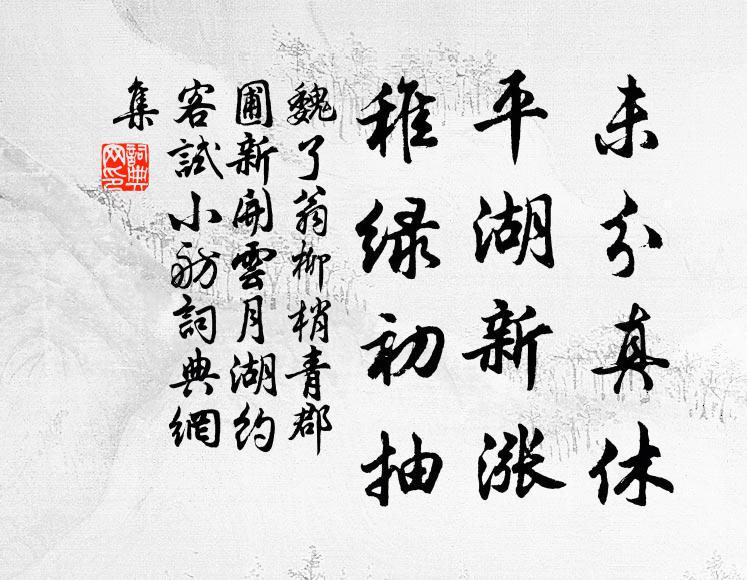 未分真休
平湖新漲
稚绿初抽
魏了翁柳梢青郡
圃新開雲月湖約
客試小舫詞典網
集
詞典
网印